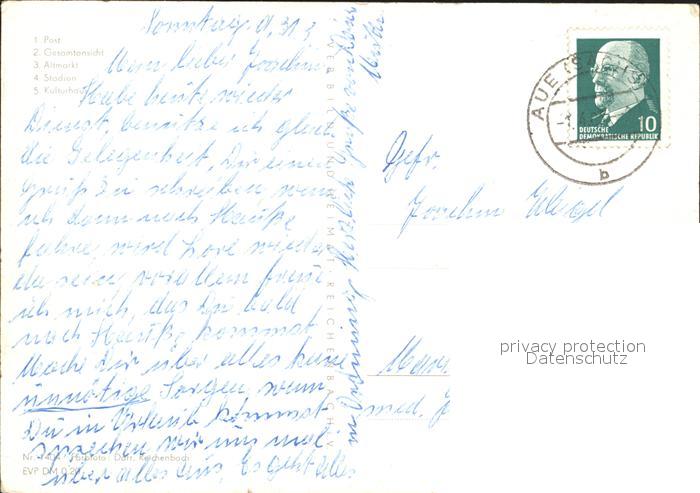 1. Post
2. Gesamtansicht
3. Altmarkt
4. Stadion
5. Kulturhaus
Sonntag d. 31.3
Mein lieber Joachim
Habe heute wieder
Dienst, benütze ich gleich
die Gelegenheit, Dir einen
Gruß zu schreiben wenn
ich dann nach Hauße
fahre, wird Lore wieder
da sein, vor allem freue
ich mich, das Du bald
nach Hauße kommst.
Mache Dir über alles keine
unnötige Sorgen, wenn
Du in Urlaub kommst
sprechen wir uns mal
über alles aus, Es geht alles
in Ordnung Herzliche Grüße
VERLAG BILD UND HEIMAT REICHENBACH I. V.
Nr. Farbfoto: Darr, Reichenbach
EVP DM 0,20
AUE (SACHS)
b
DEUTSCHE
DEMOKRATISCHE REPUBLIK
10
Gefr.
Joachim
med.
privacy protection
Datenschutz